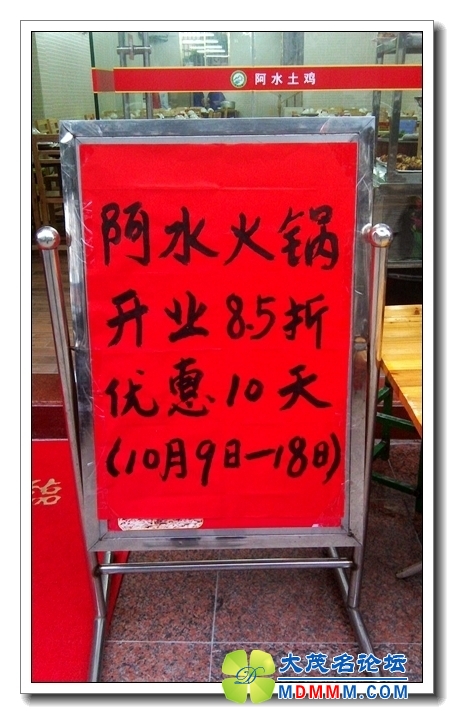 阿水土鸡
阿水火锅
开业8.5折
优惠10天
(10月9日—18日)
大茂名论坛
MDMMM.COM